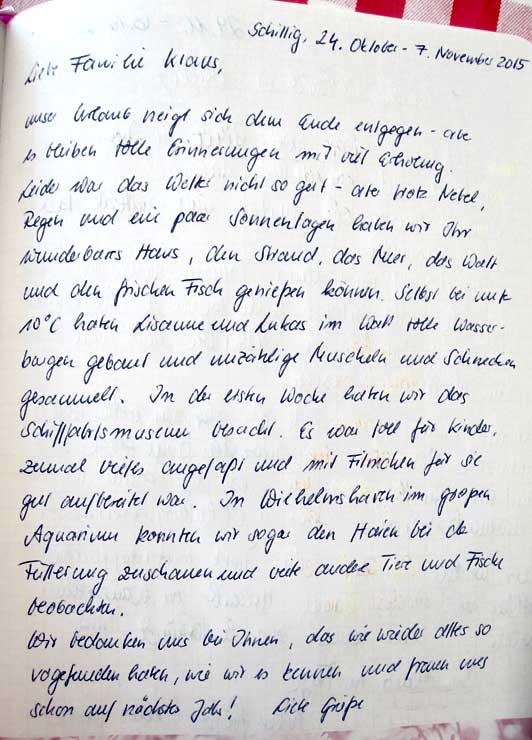 Schillig, 24. Oktober - 7. November 2015
Liebe Familie Klaus,
unser Urlaub neigt sich dem Ende entgegen - aber
es bleiben tolle Erinnerungen mit viel Erholung.
Leider war das Wetter nicht so gut - aber trotz Nebel,
Regen und ein paar Sonnentagen haben wir Ihr
wunderbares Haus, den Strand, das Meer, das Watt
und den frischen Fisch genießen können. Selbst bei unter
10°C haben Lisanne und Lukas im Watt tolle Wasser-
burgen gebaut und unzählige Muscheln und Schnecken
gesammelt. In der ersten Woche haben wir das
Schifffahrtsmuseum besucht. Es war toll für Kinder,
zumal vieles angefaßt und mit Filmchen für sie
gut aufbereitet war. In Wilhelmshaven im großen
Aquarium konnten wir sogar den Haien bei der
Fütterung zuschauen und viele andere Tiere und Fische
beobachten.
Wir bedanken uns bei Ihnen, das wir wieder alles so
vorgefunden haben, wie wir es kennen und freuen uns
schon auf nächstes Jahr! Liebe Grüße